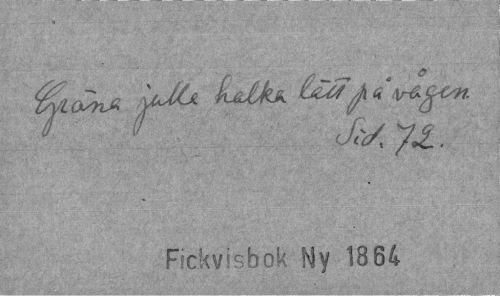 Gröna julle halka lätt på vågen.
Sid. 72.
Fickvisbok Ny 1864